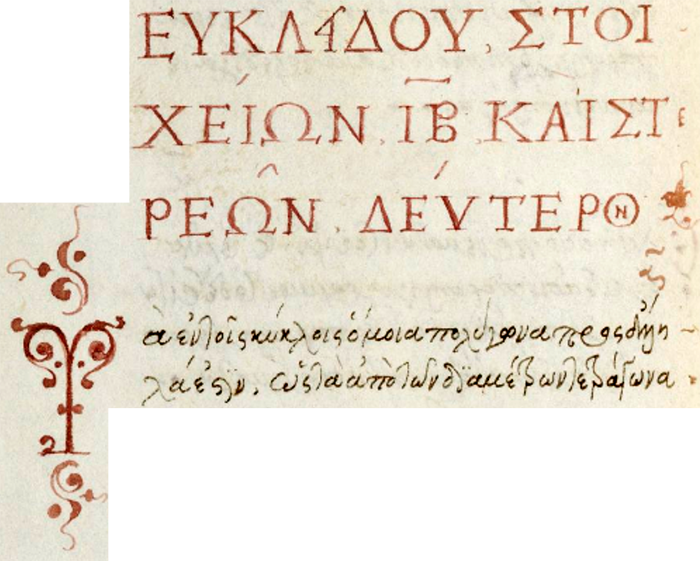 ΕΥΚΛΊΔΟΥ. ΣΤΟΙ
ΧΕΊΩΝ. ΙΒ̅. ΚΑῚ ΣΤ
ΡΕΩ͂Ν. ΔΕΎΤΕΡΟΝ
Τὰ ἐν τοῖς κύκλοις ὅμοια πολύγωνα πρὸς ἄλλη
λά ἐστιν, ὡς τὰ ἀπὸ τῶν διαμέτρων τετράγωνα